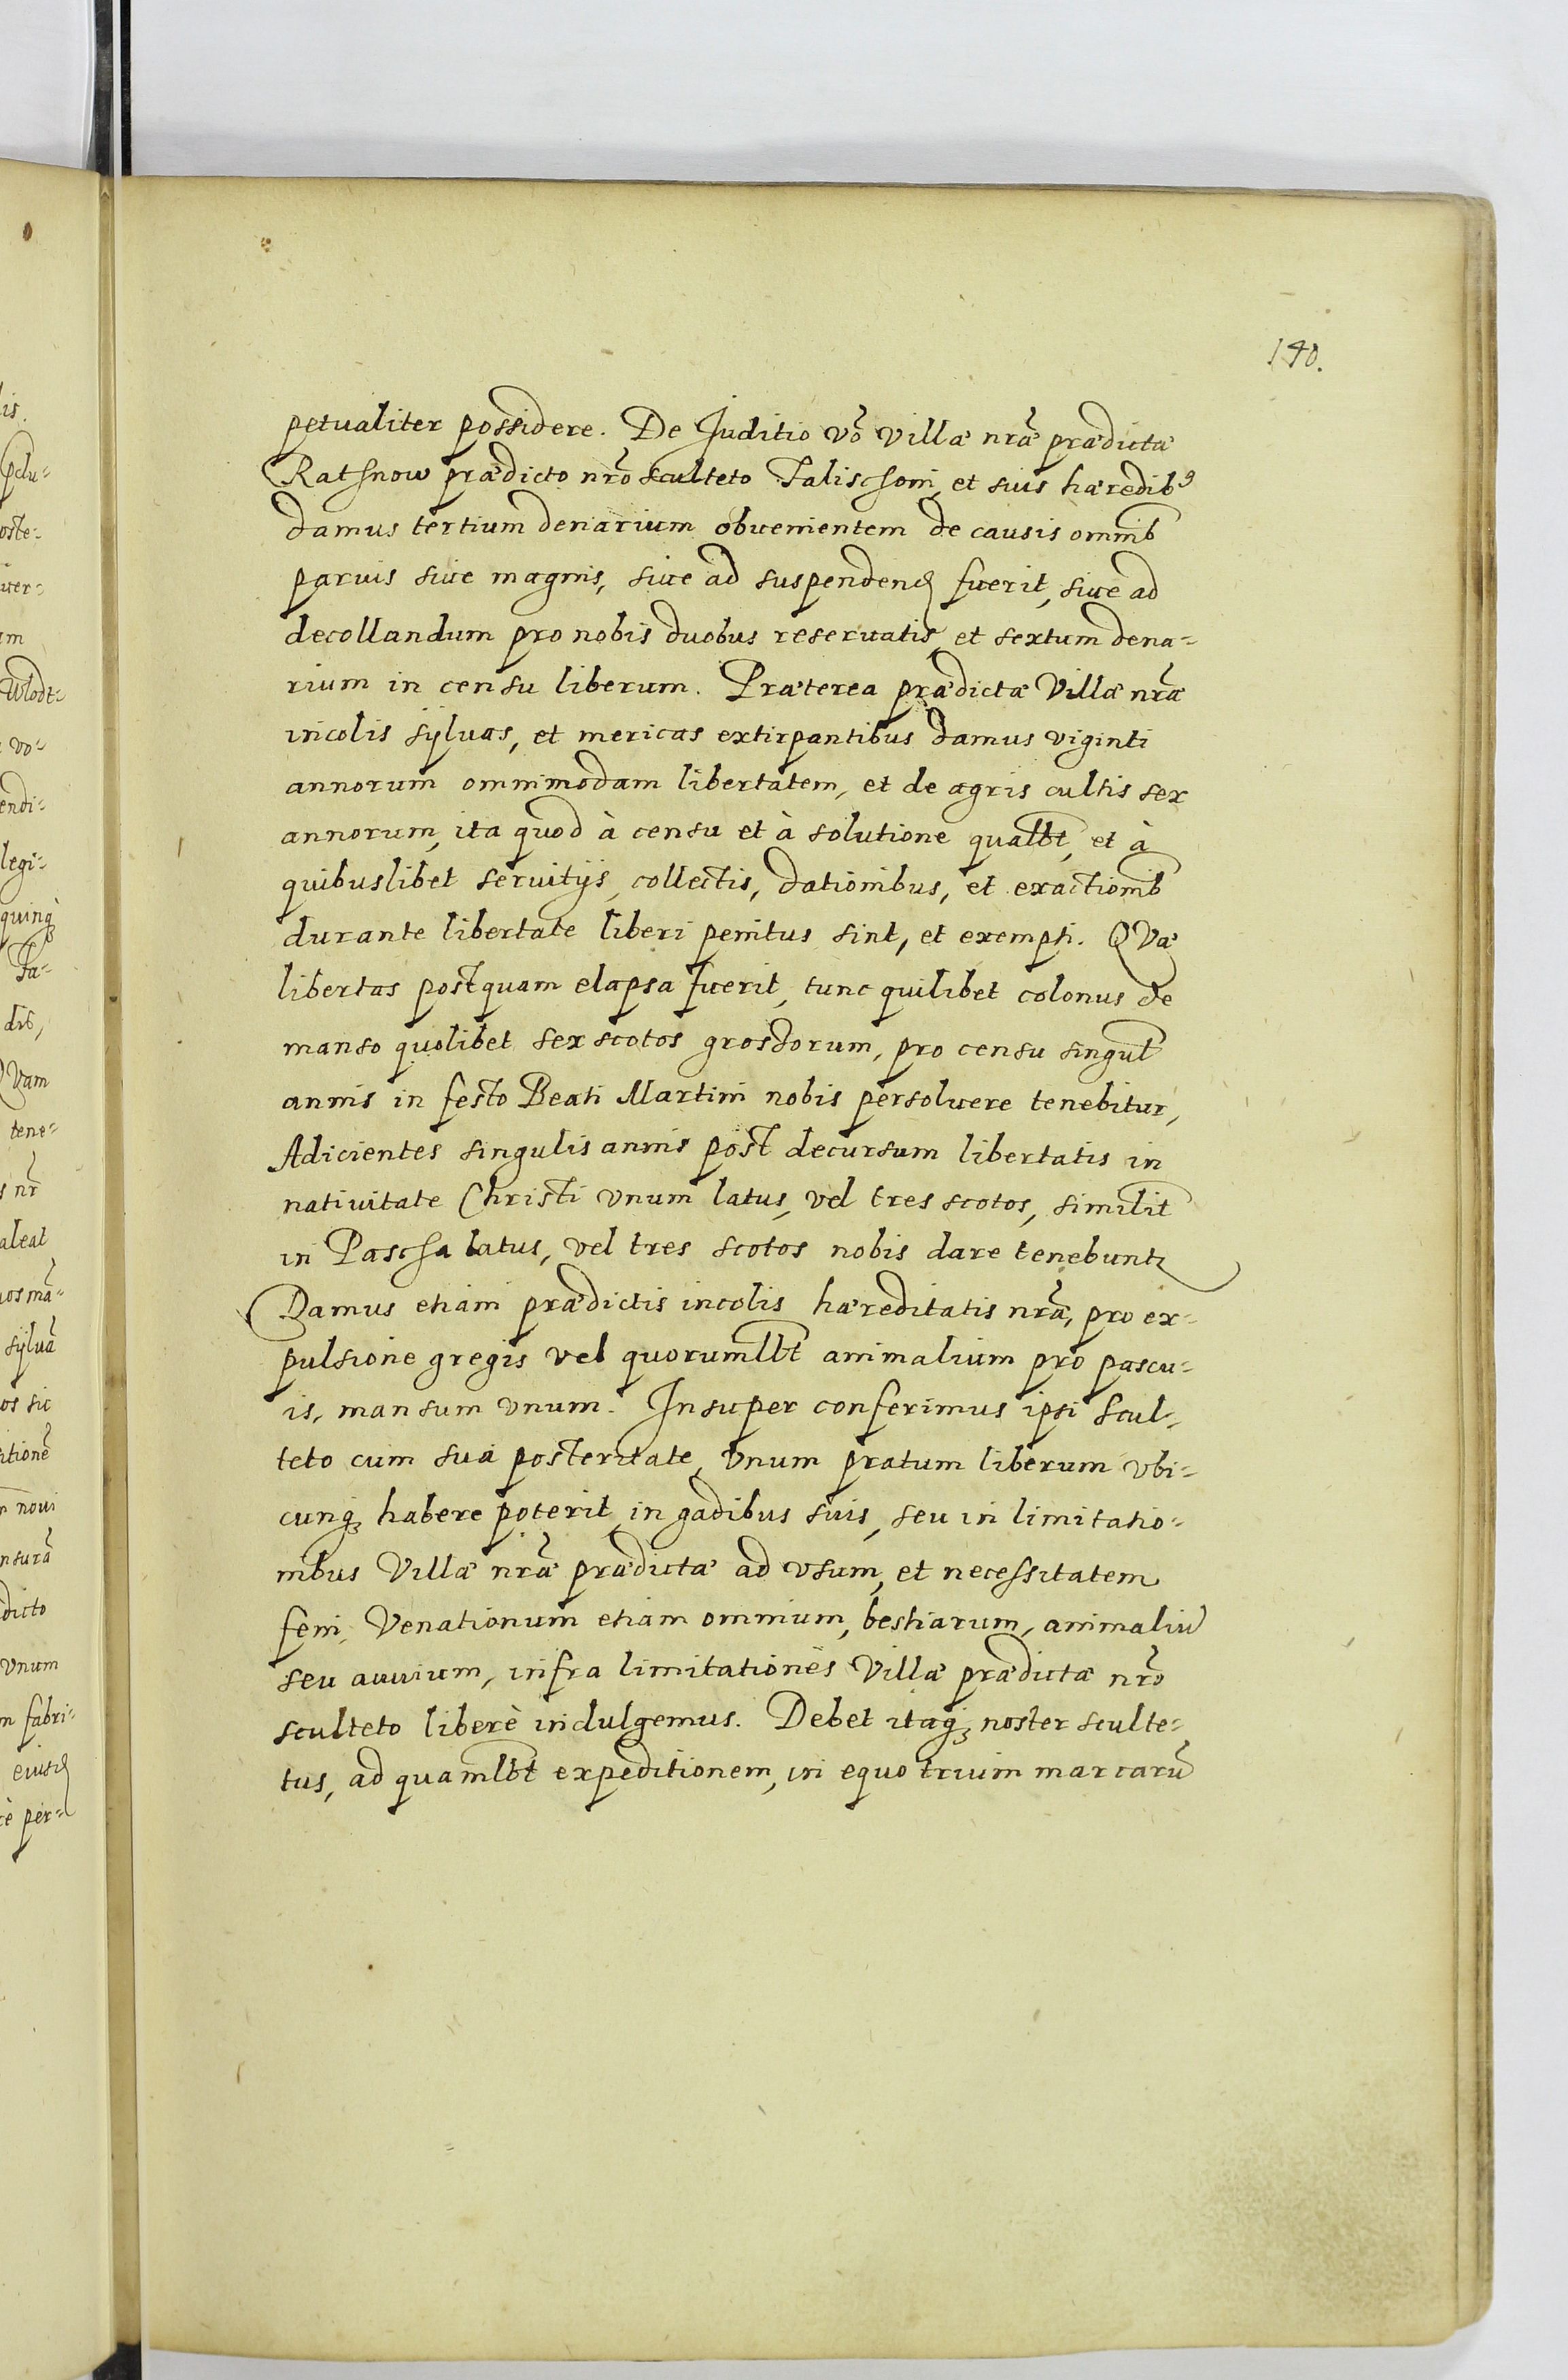 140.
petualiter possidere. De Juditio võ villæ nrã prædictæ
Ratsnow prædicto nrõ sculteto Falischoni, et suis hæredibꝰ
damus tertium denarium obuenientem de causis omnib
paruis siue magnis, siue ad suspendend fuerit, siue ad
decollandum pro nobis duobus reseruatis, et sextum dena=
rium in censu liberum. Præterea prædictæ Villæ nrã
incolis sÿluas, et mericas extirpantibus damus viginti
annorum omnimodam libertatem, et de agris cultis sex
annorum, ita quod à censu et à solutione qualbt, et à
quibuslibet seruitijs, collectis, dationibus, et exactionib
durante libertate liberi penitus sint, et exempti. QVæ
libertas postquam elapsa fuerit, tunc quilibet colonus de
manso quolibet sex scotos grossorum, pro censu singul
annis in festo Beati Martini nobis persoluere tenebitur,
Adicientes singulis annis post decursum libertatis in
natiuitate Christi vnum latus, vel tres scotos, similit
in Pascha latus, vel tres scotos nobis dare tenebunt
Damus etiam prædictis incolis hæreditatis nrã, pro ex=
pulsione gregis vel quorumlbt animalium pro pascu=
is, mansum vnum. Insuper conferimus ipsi scul=
teto cum sua posteritate, vnum pratum liberum vbi=
cunqꝫ habere poterit, in gadibus suis, seu in limitatio=
nibus Villæ nrã prædictæ ad vsum, et necessitatem
feni, Venationum etiam omnium, bestiarum, animaliũ
seu auuium, infra limitationes Villæ prædictæ nrõ
sculteto liberè indulgemus. Debet itaqꝫ noster sculte=
tus, ad quamlbt expeditionem, in equo trium marcarũ